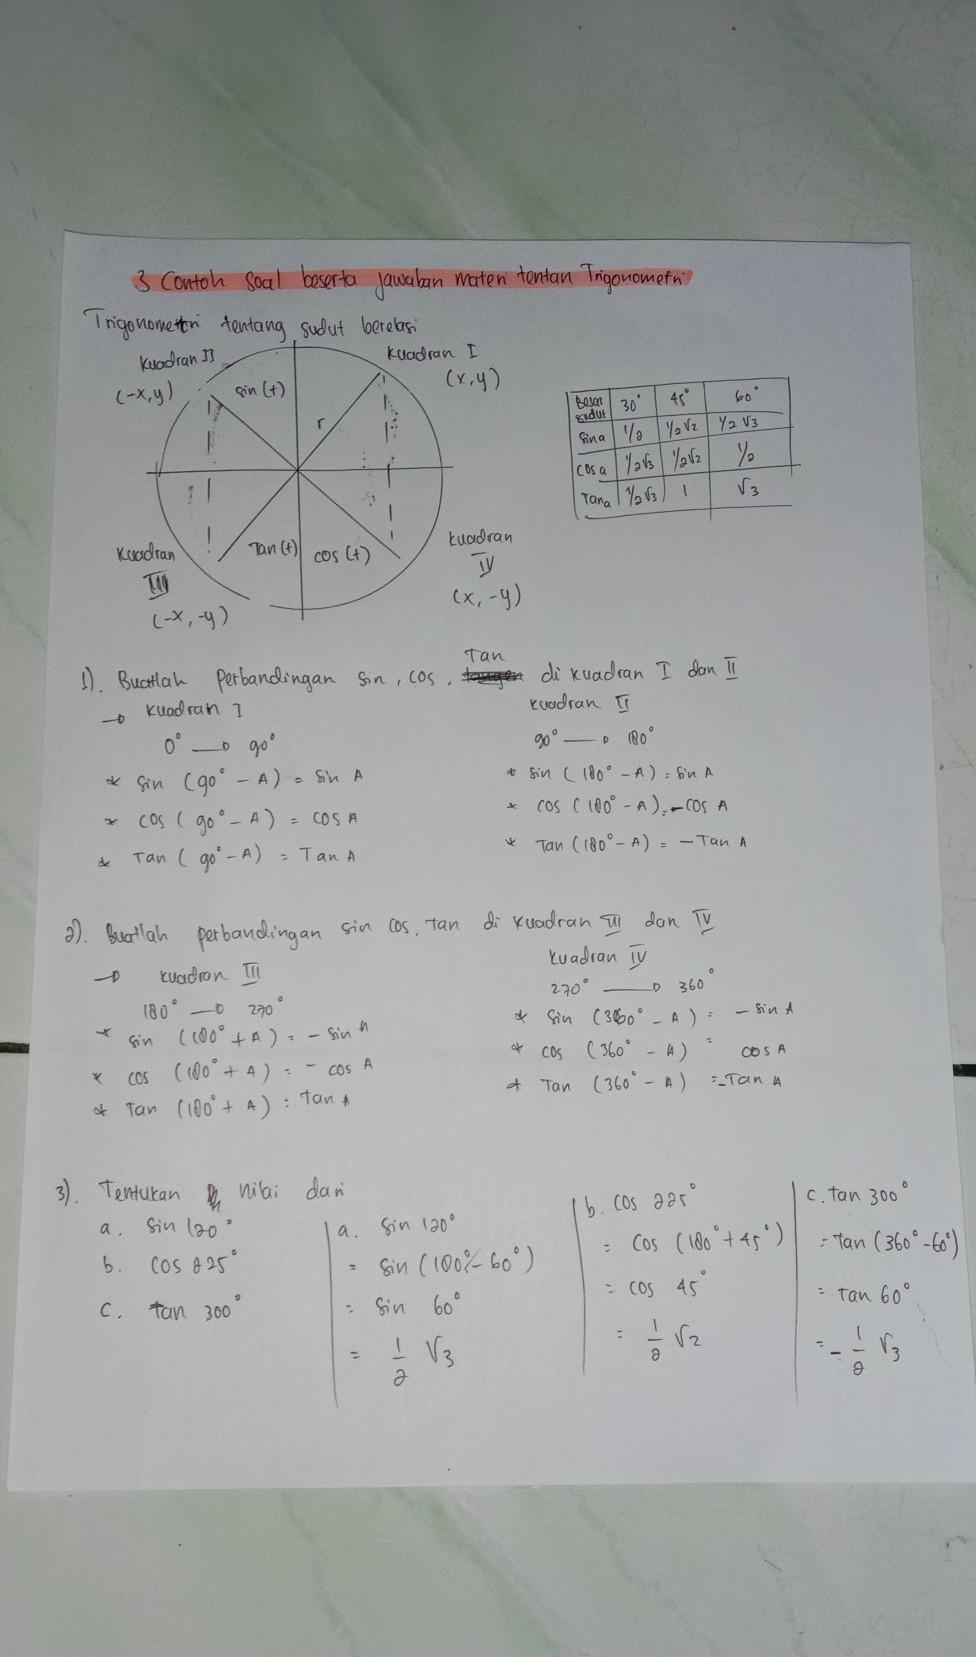 3 Contoh Soal beserta jawaban materi tentan Trigonometri
Trigonometri tentang sudut berelasi
Kuadran II
Kuadran I
(-x,y)
sin (+)
(x,y)
r
Kuadran III
Tan (+)
cos (+)
Kuadran IV
(-x, -y)
(x, -y)
Besar sudut 30° 45° 60°
Sin a 1/2 1/2√2 1/2√3
Cos a 1/2√3 1/2√2 1/2
Tan a 1/2√3 1 √3
1). Buatlah Perbandingan sin, cos, Tan di kuadran I dan II
→ Kuadran I
0° → 90°
* sin (90° - A) = sin A
* cos (90° - A) = cos A
* Tan (90° - A) = Tan A
Kuadran II
90° → 180°
* sin (180° - A) = sin A
* cos (180° - A) = - cos A
* Tan (180° - A) = - Tan A
2). Buatlah perbandingan sin cos, tan di kuadran III dan IV
→ kuadran III
180° → 270°
* sin (180° + A) = - sin A
* cos (180° + A) = - cos A
* Tan (180° + A) = Tan A
Kuadran IV
270° → 360°
* sin (360° - A) = - sin A
* cos (360° - A) = cos A
* Tan (360° - A) = - Tan A
3). Tentukan nilai dari
a. Sin 120°
b. cos 225°
c. tan 300°
a. Sin 120°
= sin (180° - 60°)
= Sin 60°
= 1/2 √3
b. cos 225°
= cos (180° + 45°)
= cos 45°
= 1/2 √2
c. tan 300°
= Tan (360° - 60°)
= Tan 60°
= - 1/2 √3